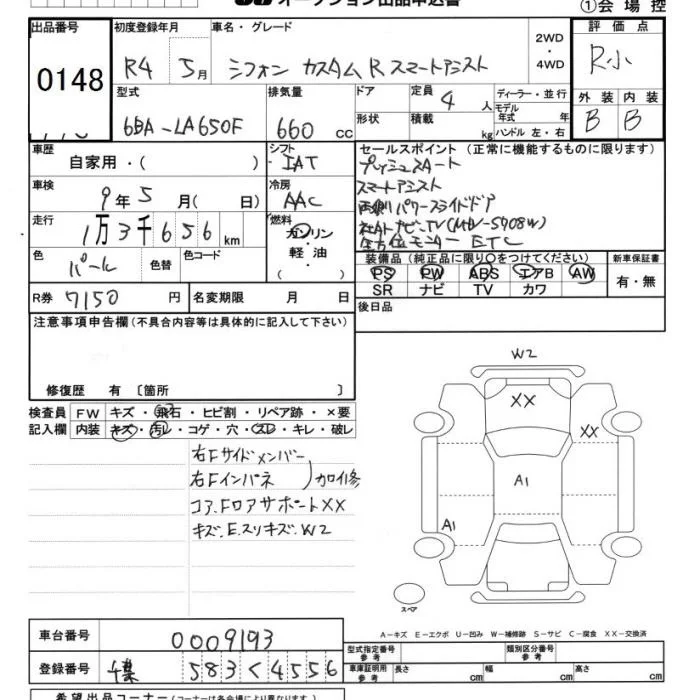 オークション出品申込書
①会場控
出品番号 0148
初度登録年月 R4 5月
車名・グレード シフォン カスタムRスマートアシスト
2WD・4WD
評価点 R小
型式 6BA-LA650F
排気量 660 cc
ドア
形状
定員 4 人
積載 kg
ディーラー・並行
モデル年式 年
ハンドル 左・右
外装 B
内装 B
車歴 自家用・( )
シフト IAT
セールスポイント (正常に機能するものに限ります)
プッシュスタート
スマートアシスト
両側パワースライドドア
社外ナビ・TV(MDV-S708W)
全方位モニター ETC
車検 9年5月( 日)
冷房 AAC
走行 1万3千656km
燃料 ガソリン・軽油・( )
色 パール
色替
色コード
装備品 (純正品に限り○をつけてください)
PS PW ABS エアB AW
SR ナビ TV カワ
新車保証書 有・無
R券 7150円
名変期限 月 日
後日品
注意事項申告欄 (不具合内容等は具体的に記入して下さい)
修復歴 有 〔箇所 〕
検査員記入欄
FW キズ・飛石・ヒビ割・リペア跡・×要
内装 キズ・汚レ・コゲ・穴・スレ・キレ・破レ
右Fサイドメンバー
右Fインパネ )加修
コア.Fロアサポート××
キズ.E.スリキズ.W2
W2
XX
XX
A1
A1
スペア
A-キズ E-エクボ U-凹み W-補修跡 S-サビ C-腐食 XX-交換済
車台番号 0009193
登録番号 千葉 583く4556
型式指定番号
類別区分番号
車庫証明用参考
長さ cm
幅 cm
高さ cm
希望出品コーナー (コーナーは各会場により異なります)